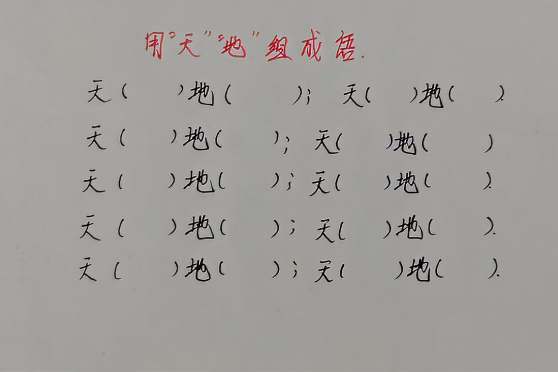 用“天”“地”组成语.
天（ ）地（ ）；天（ ）地（ ）.
天（ ）地（ ）；天（ ）地（ ）
天（ ）地（ ）；天（ ）地（ ）.
天（ ）地（ ）；天（ ）地（ ）.
天（ ）地（ ）；天（ ）地（ ）.